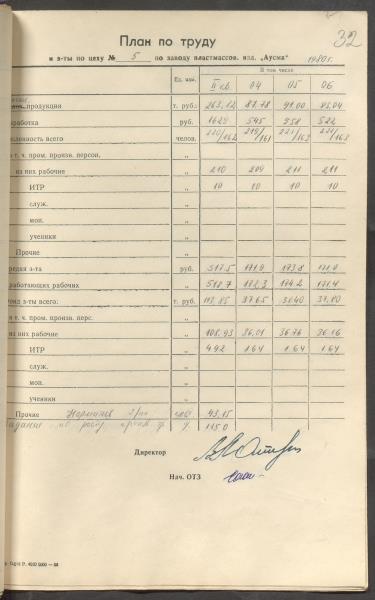 32
План по труду
и з-ты по цеху № 5 по заводу пластмассов. изд. „Аусма" 1980 г.
Ед. изм. II кв. В том числе 04 05 06
продукции т. руб. 263.12 87.78 91.00 85.04
работка руб. 1629 545 558 522
ленность всего челов. 220/162 219/161 221/163 221/163
т. ч. пром. произв. персон. „
из них рабочие „ 210 209 211 211
ИТР „ 10 10 10 10
служ. „
моп. „
ученики „
Прочие „
редняя з-та руб. 517.5 171.9 173.8 171.0
работающих рабочих „ 518.7 172.3 174.2 171.4
онд з-ты всего: т. руб. 113.85 37.65 37.80
т. ч. пром. произв. перс. „
из них рабочие „ 108.93 36.01 36.76 36.16
ИТР „ 4.92 1.64 1.64 1.64
служ. „
моп. „
ученики „
Прочие 43.15
115.0
Директор
Нач. ОТЗ